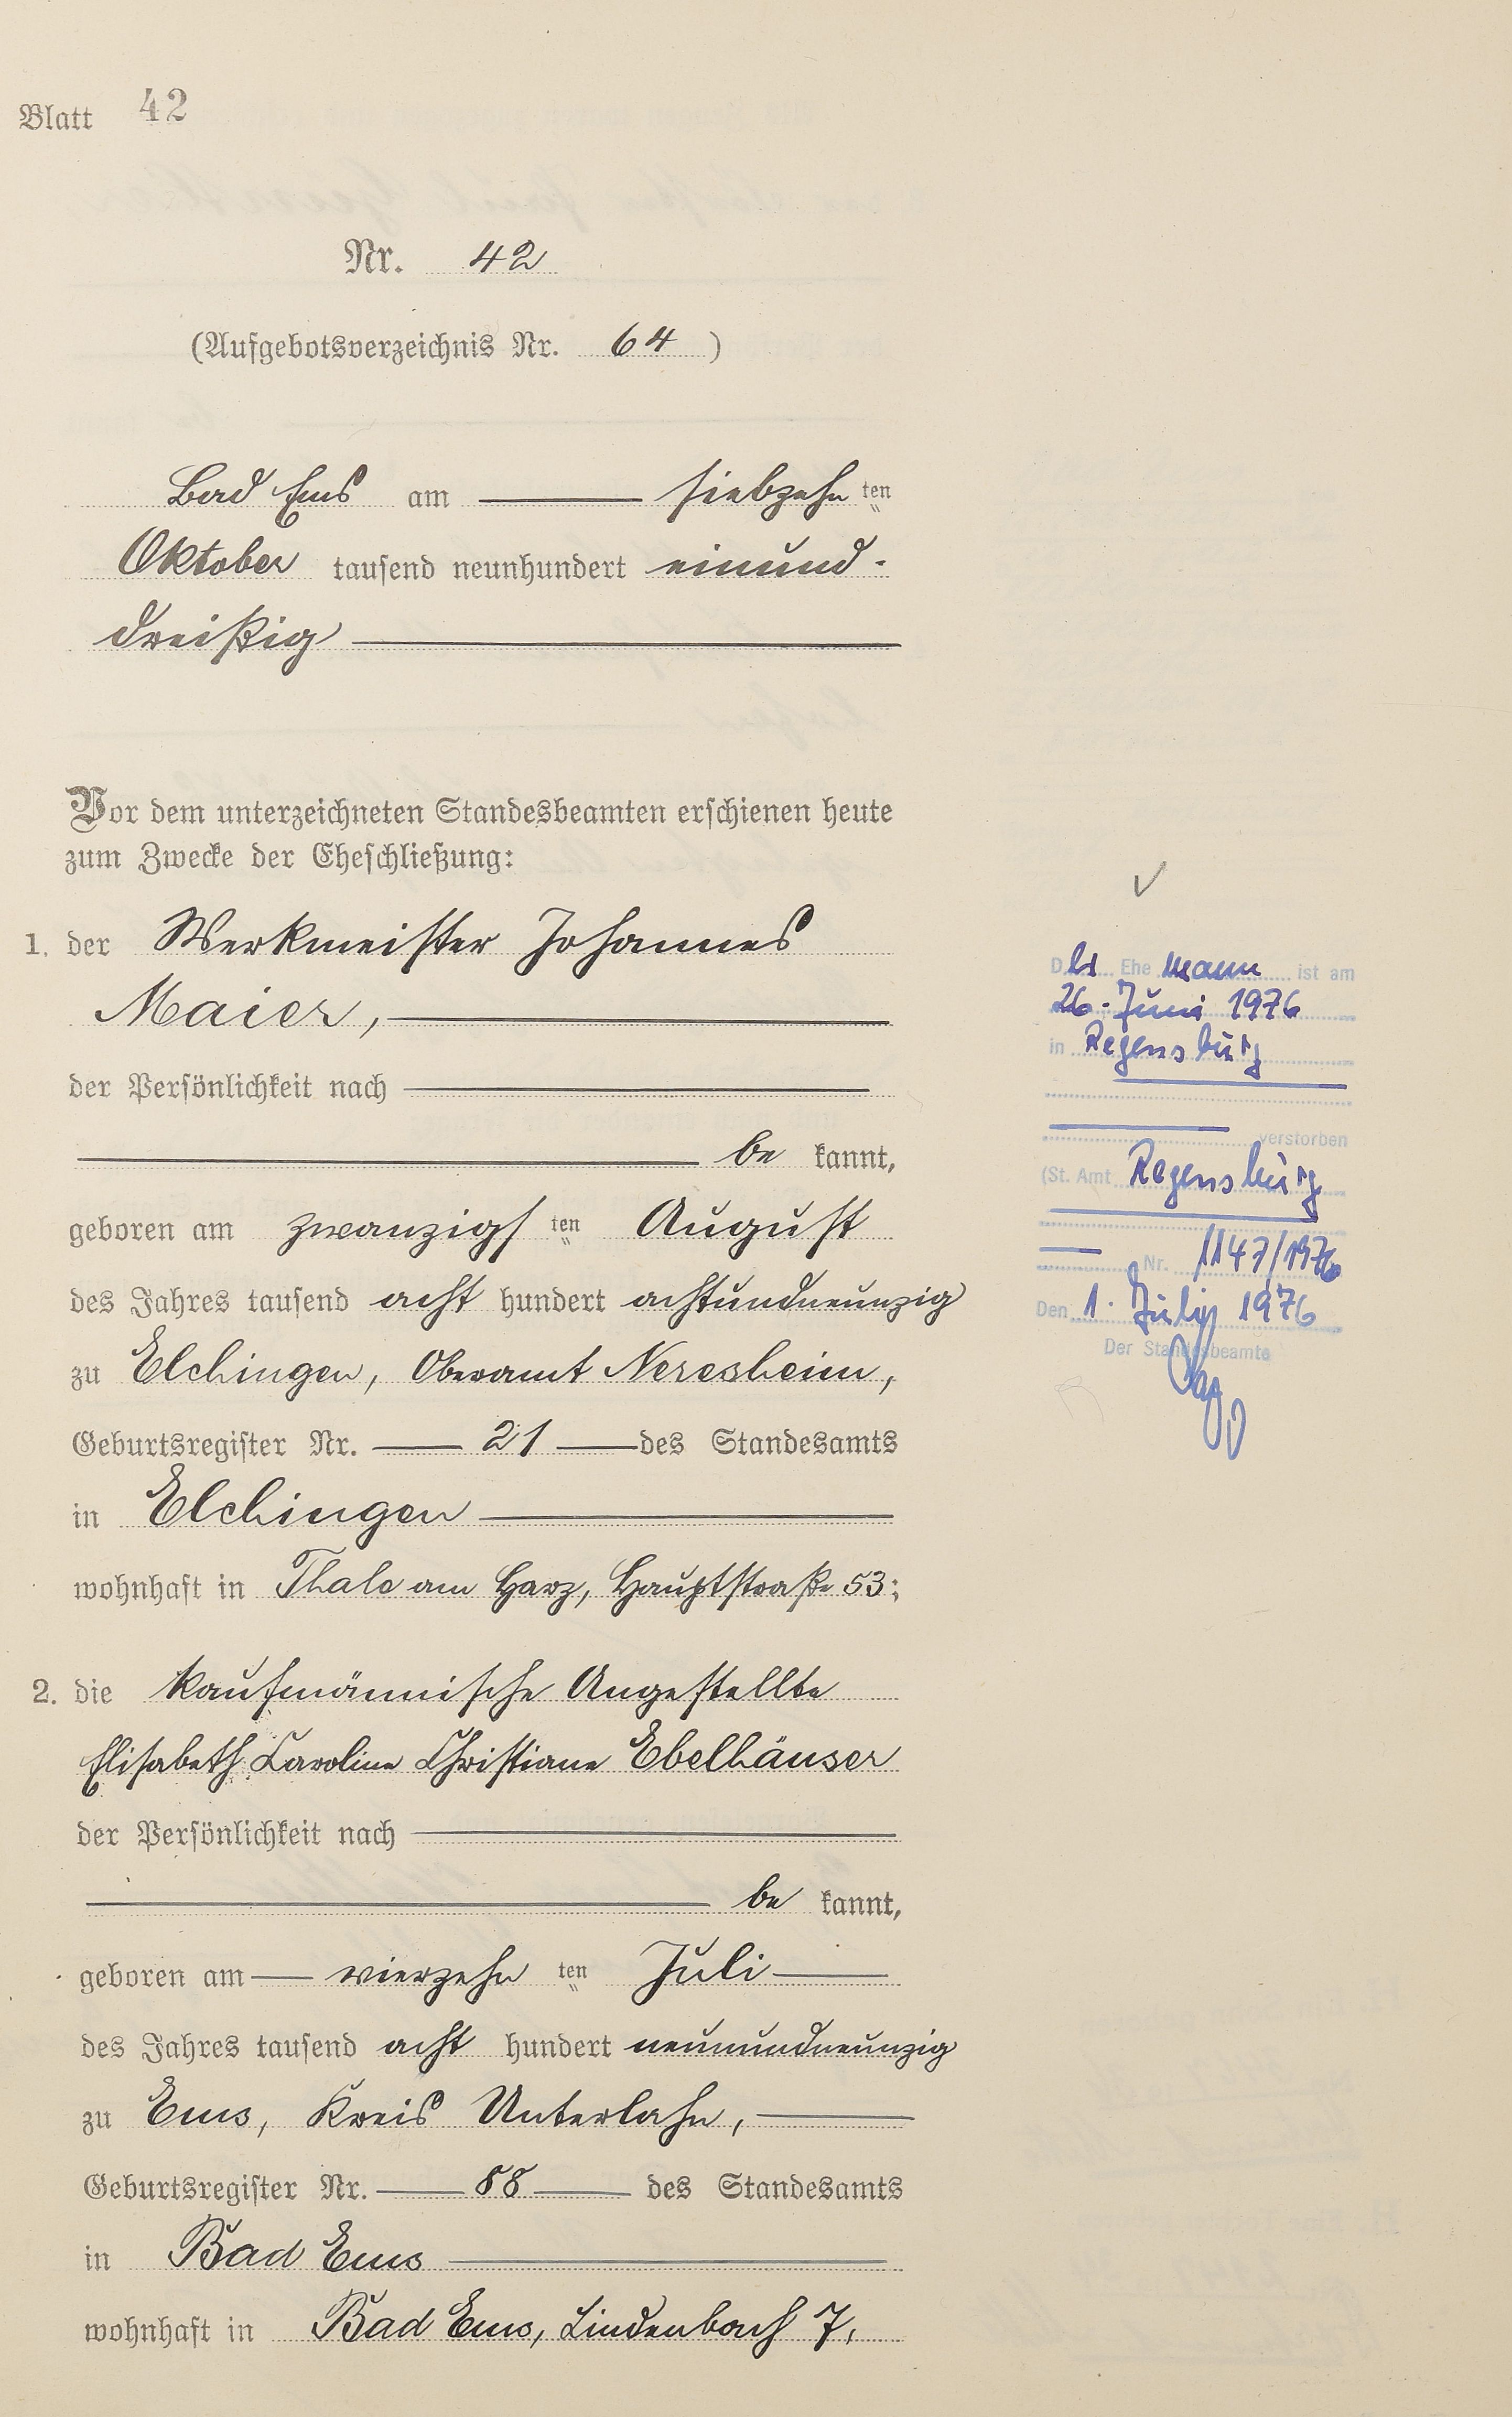 Blatt 42
Nr. 42
(Aufgebotsverzeichnis Nr. 64)
Bad Ems am siebzehnten
Oktober tausend neunhundert einund-
dreißig
Vor dem unterzeichneten Standesbeamten erschienen heute
zum Zwecke der Eheschließung:
1. der Werkmeister Johannes
Maier,
der Persönlichkeit nach
be kannt,
geboren am zwanzigsten August
des Jahres tausend acht hundert achtundneunzig
zu Elchingen, Oberamt Neresheim,
Geburtsregister Nr. 21 des Standesamts
in Elchingen
wohnhaft in Thale am Harz, Hauptstraße 53;
2. die kaufmännische Angestellte
Elisabeth Caroline Christiane Ebelhäuser
der Persönlichkeit nach
be kannt,
geboren am vierzehnten Juli
des Jahres tausend acht hundert neunundneunzig
zu Ems, Kreis Unterlahn,
Geburtsregister Nr. 88 des Standesamts
in Bad Ems
wohnhaft in Bad Ems, Lindenbach 7,
Der Ehemann ist am
26. Juni 1976
in Regensburg
verstorben
(St. Amt Regensburg
Nr. 1147/1976
Den 1. July 1976
Der Standesbeamte